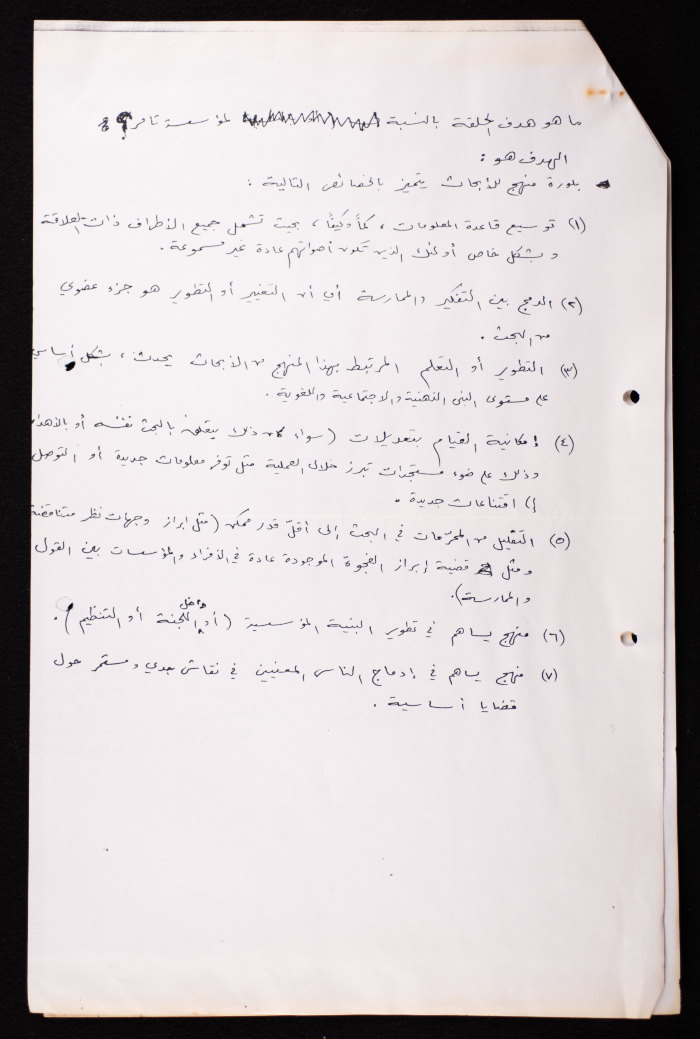 ما هو هدف الحلقة بالنسبة لمؤسسة تامر؟
الهدف هو :
بلورة منهج للأبحاث يتميز بالخصائص التالية :
(١) توسيع قاعدة المعلومات ، كماً وكيفاً ، بحيث تشمل جميع الأطراف ذات العلاقة
وبشكل خاص أولئك الذين تكون أصواتهم عادة غير مسموعة .
(٢) الدمج بين التفكير والممارسة أي أن التغيير أو التطوير هو جزء عضوي
من البحث .
(٣) التطوير أو التعلم المرتبط بهذا المنهج من الأبحاث يحدث ، بشكل أساسي
على مستوى البنى الذهنية والاجتماعية واللغوية .
(٤) إمكانية القيام بتعديلات (سواء كان ذلك يتعلق بالبحث نفسه أو بالأهداف
وذلك على ضوء مستجدات تبرز خلال العملية مثل توفر معلومات جديدة أو التوصل
إلى اقتناعات جديدة .
(٥) التقليل من المحرّمات في البحث إلى أقلّ قدر ممكن (مثل ابراز وجهات نظر متناقضة
ومثل قضية إبراز الفجوة الموجودة عادة في الأفراد والمؤسسات بين القول
والممارسة).
(٦) منهج يساهم في تطوير البنية المؤسسية (أو داخل اللجنة أو التنظيم) .
(٧) منهج يساهم في إدماج الناس المعنيين في نقاش جدي ومستمر حول
قضايا أساسية .